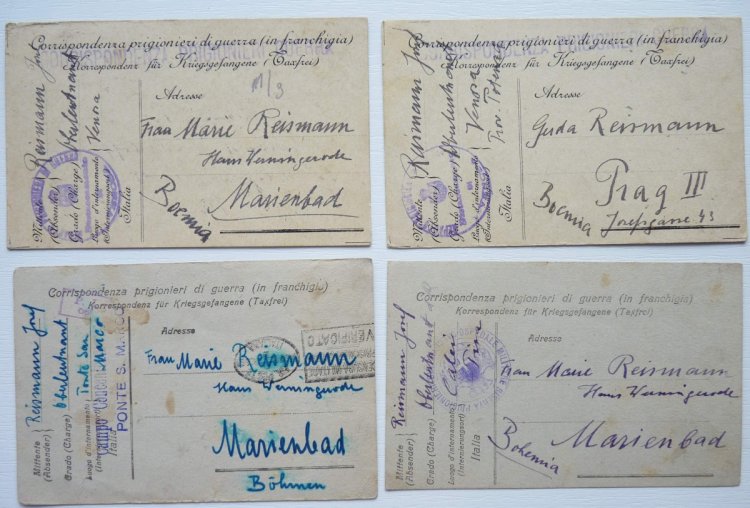 Corrispondenza prigionieri di guerra (in franchigia)
Korrespondenz für Kriegsgefangene (Taxfrei)
M/3
Adresse
Frau Marie Reismann
Haus Wernigerode
Marienbad
Boemia
Mittente (Absender) Reismann Josef
Grado (Charge) Oberleutnant
Luogo d'internamento Venosa
Italia
Corrispondenza prigionieri di guerra (in franchigia)
Korrespondenz für Kriegsgefangene (Taxfrei)
Adresse
Guda Reismann
Prag III
Boemia
Josefsgasse 43
Mittente (Absender) Reismann Josef
Grado (Charge) Oberleutnant
Luogo d'internamento Venosa
Prov. Potenza
Italia
Corrispondenza prigionieri di guerra (in franchigia)
Korrespondenz für Kriegsgefangene (Taxfrei)
Adresse
Frau Marie Reismann
Haus Wernigerode
Marienbad
Böhmen
VERIFICATO
Mittente (Absender) Reismann Josef
Grado (Charge) Oberleutnant
Luogo d'internamento Ponte San Marco
Italia
PONTE S. M.
Corrispondenza prigionieri di guerra (in franchigia)
Korrespondenz für Kriegsgefangene (Taxfrei)
Adresse
Frau Marie Reismann
Haus Wernigerode
Marienbad
Bohemia
Mittente (Absender) Reismann Josef
Grado (Charge) Oberleutnant
Luogo d'internamento Calci
Pisa
Italia